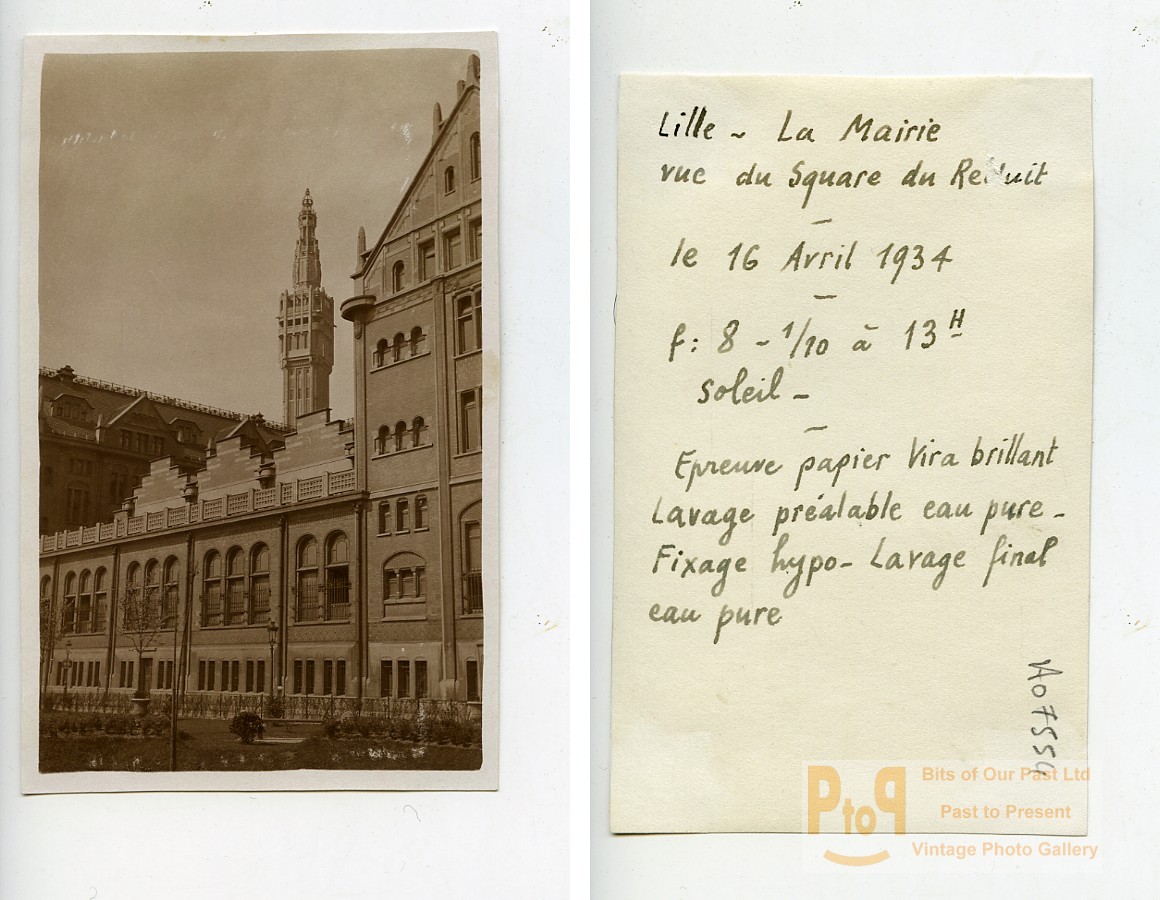 Lille - La Mairie
vue du Square du Reduit
le 16 Avril 1934
f: 8 - 1/10 à 13H
soleil -
Epreuve papier Vira brillant
Lavage préalable eau pure -
Fixage hypo - Lavage final
eau pure
A07554
PtoP
Bits of Our Past Ltd
Past to Present
Vintage Photo Gallery